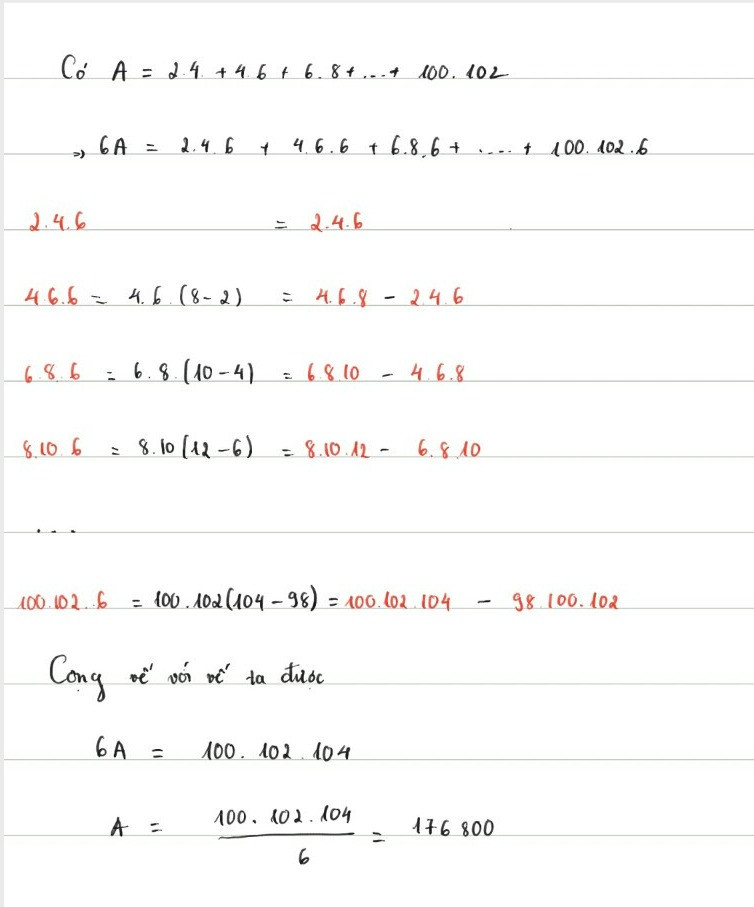 Có A = 2.4. + 4.6 + 6.8 + ... + 100.102
=> 6A = 2.4.6 + 4.6.6 + 6.8.6 + .... + 100.102.6
2.4.6 = 2.4.6
4.6.6 = 4.6.(8-2) = 4.6.8 - 2.4.6
6.8.6 = 6.8.(10-4) = 6.8.10 - 4.6.8
8.10.6 = 8.10(12-6) = 8.10.12 - 6.8.10
...
100.102.6 = 100.102(104-98) = 100.102.104 - 98.100.102
Cộng vế với vế ta được
6A = 100.102.104
A = 100.102.104 / 6 = 176 800